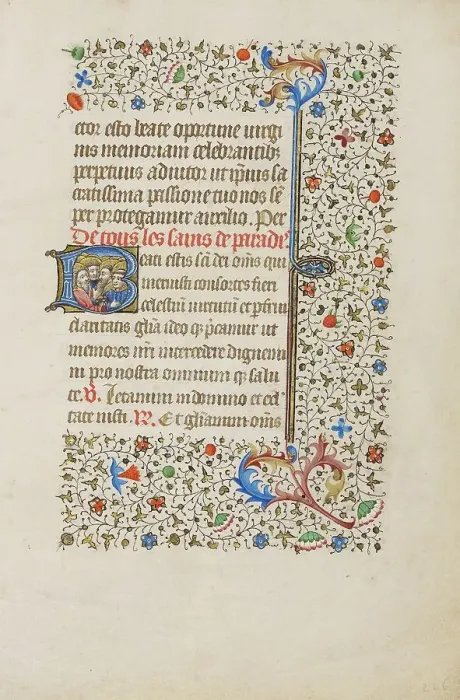 ctor esto beate oportune uirgi
nis memoriam celebrantib3
perpetuus adiutor ut ipius sa
cratissima passione tuo nos se
per protegamur auxilio. Per
De tous les sains de paradis
Beati estis sci dei oms qui
meruistis consortes fieri
celestiu uirtutu et pfrui
claritatis glia ideo q pcamur ut
memores nri intercedere dignemi
ni pro nostra omnium q salu
te. V. Letamini in domino et exl
tate iusti. R. Et gliamini oms